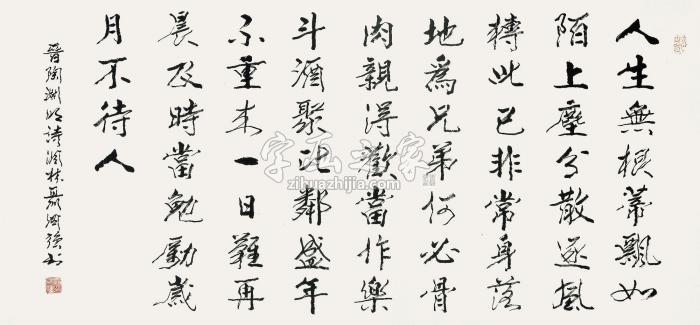 人生無根蒂飄如
陌上塵分散逐風
轉此已非常身落
地為兄弟何必骨
肉親得歡當作樂
斗酒聚比鄰盛年
不重來一日難再
晨及時當勉勵歲
月不待人
晉陶淵明詩
字画之家
zihuazhijia.com